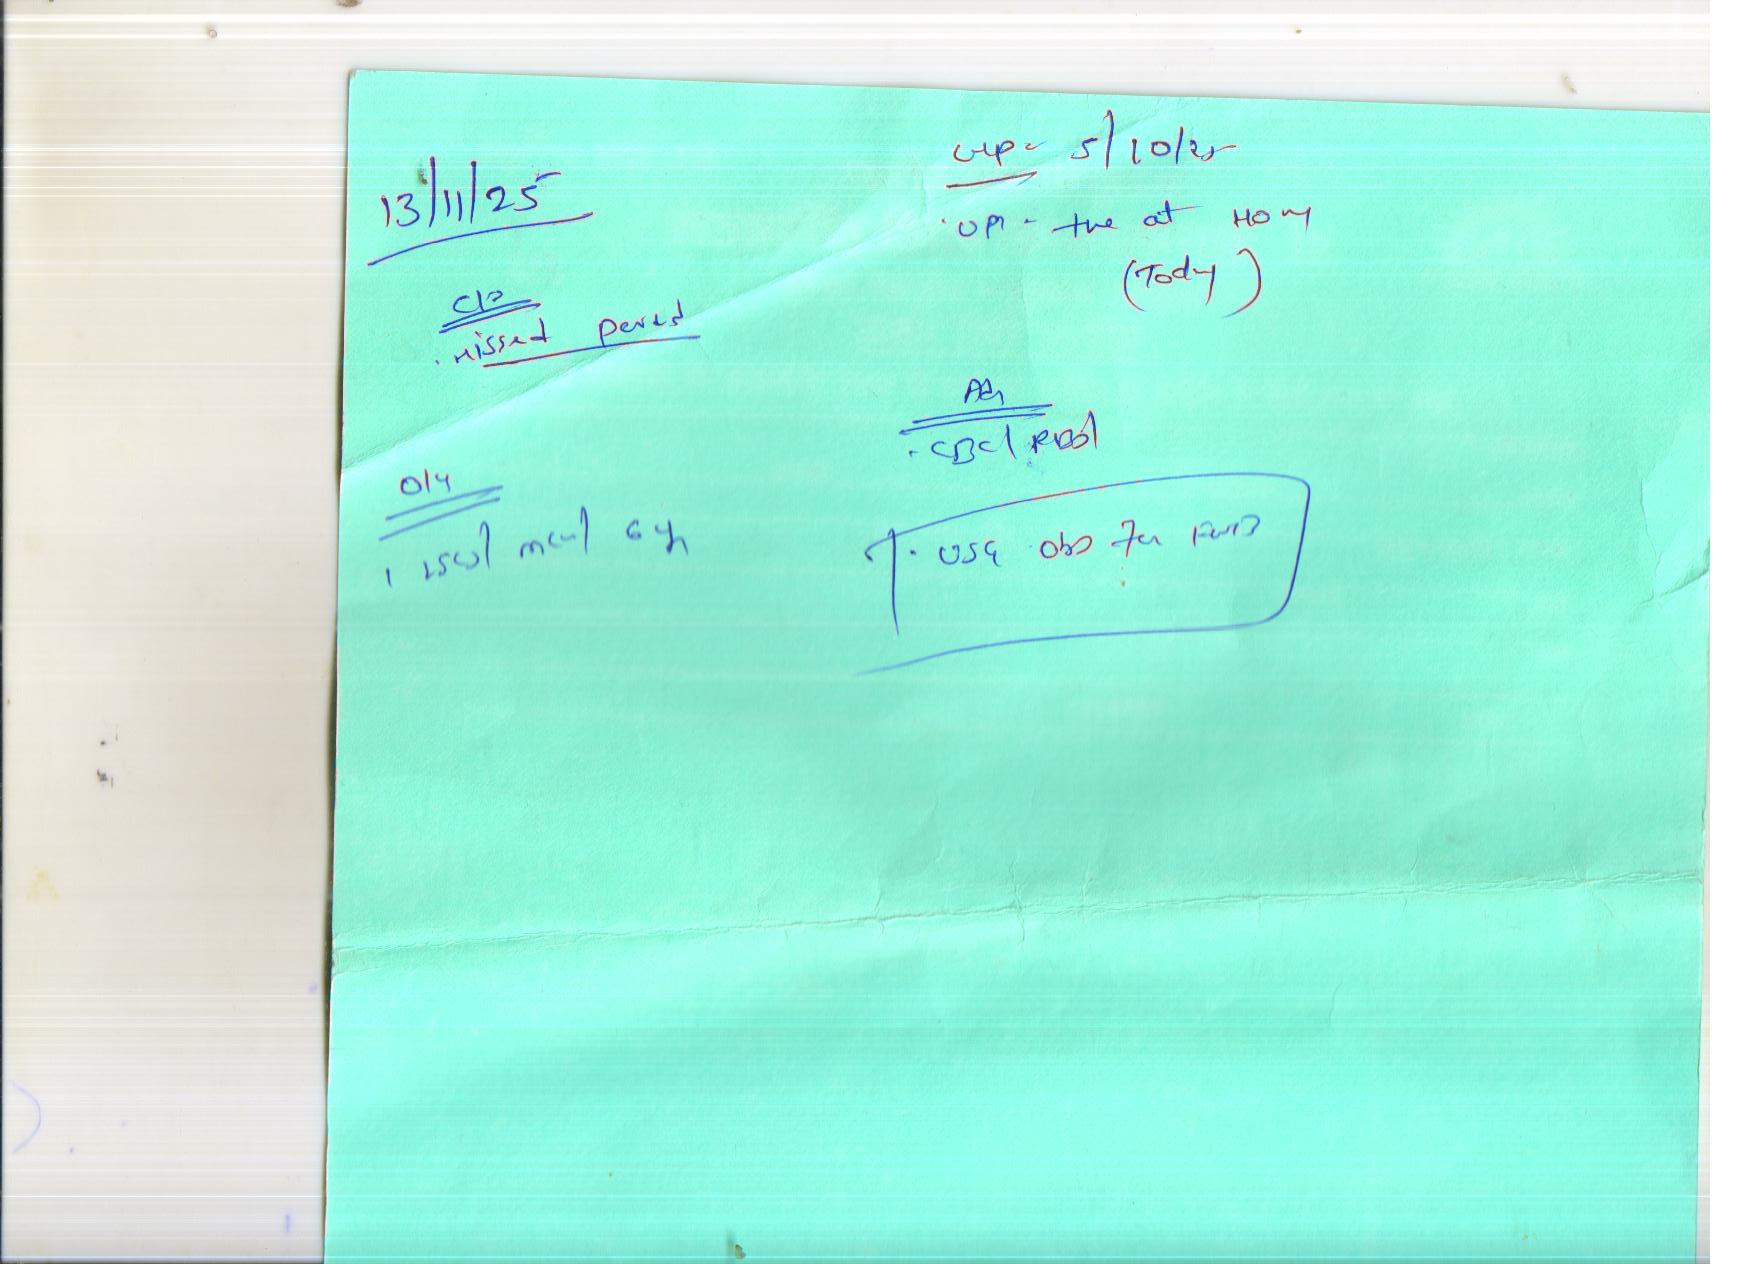 13/11/25
LMP - 5/10/25
UPT - +ve at Home
(Today)
C/o
. missed period
Adv
. CBC / RBS
O/H
1 LSCS / / 6 yr
. USG Obs for FWB